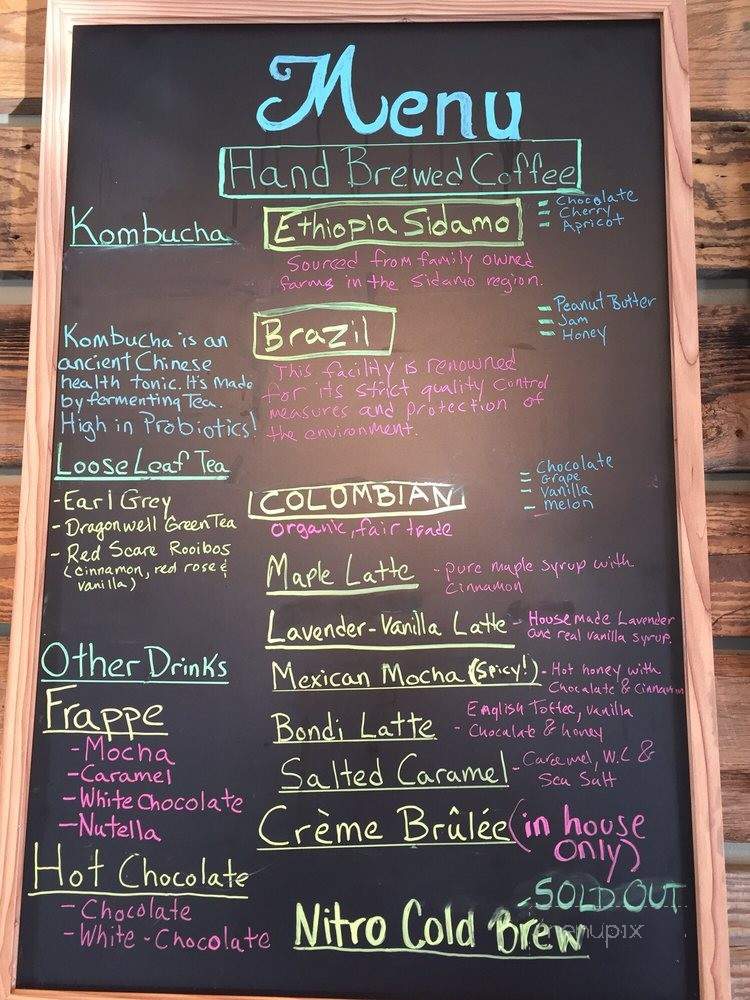 Menu
Hand Brewed Coffee
Kombucha
Kombucha is an
ancient Chinese
health tonic. It's made
by fermenting Tea.
High in Probiotics!
Loose Leaf Tea
- Earl Grey
- Dragonwell Green Tea
- Red Scare Rooibos
(cinnamon, red rose &
vanilla)
Other Drinks
Frappe
- Mocha
- Caramel
- White Chocolate
- Nutella
Hot Chocolate
- Chocolate
- White - Chocolate
Ethiopia Sidamo
- Chocolate
- Cherry
- Apricot
Sourced from family owned
farms in the Sidamo region.
Brazil
- Peanut Butter
- Jam
- Honey
This facility is renowned
for its strict quality control
measures and protection of
the environment.
COLOMBIAN
- Chocolate
- Grape
- Vanilla
- melon
organic, fair trade
Maple Latte - pure maple syrup with
cinnamon
Lavender-Vanilla Latte - House made Lavender
and real vanilla syrup.
Mexican Mocha (Spicy!) - Hot honey with
Chocolate & Cinnamon
Bondi Latte - English Toffee, vanilla
Chocolate & honey
Salted Caramel - Caramel, W.C &
Sea Salt
Crème Brûlée (in house
only)
Nitro Cold Brew - SOLD OUT
menupix